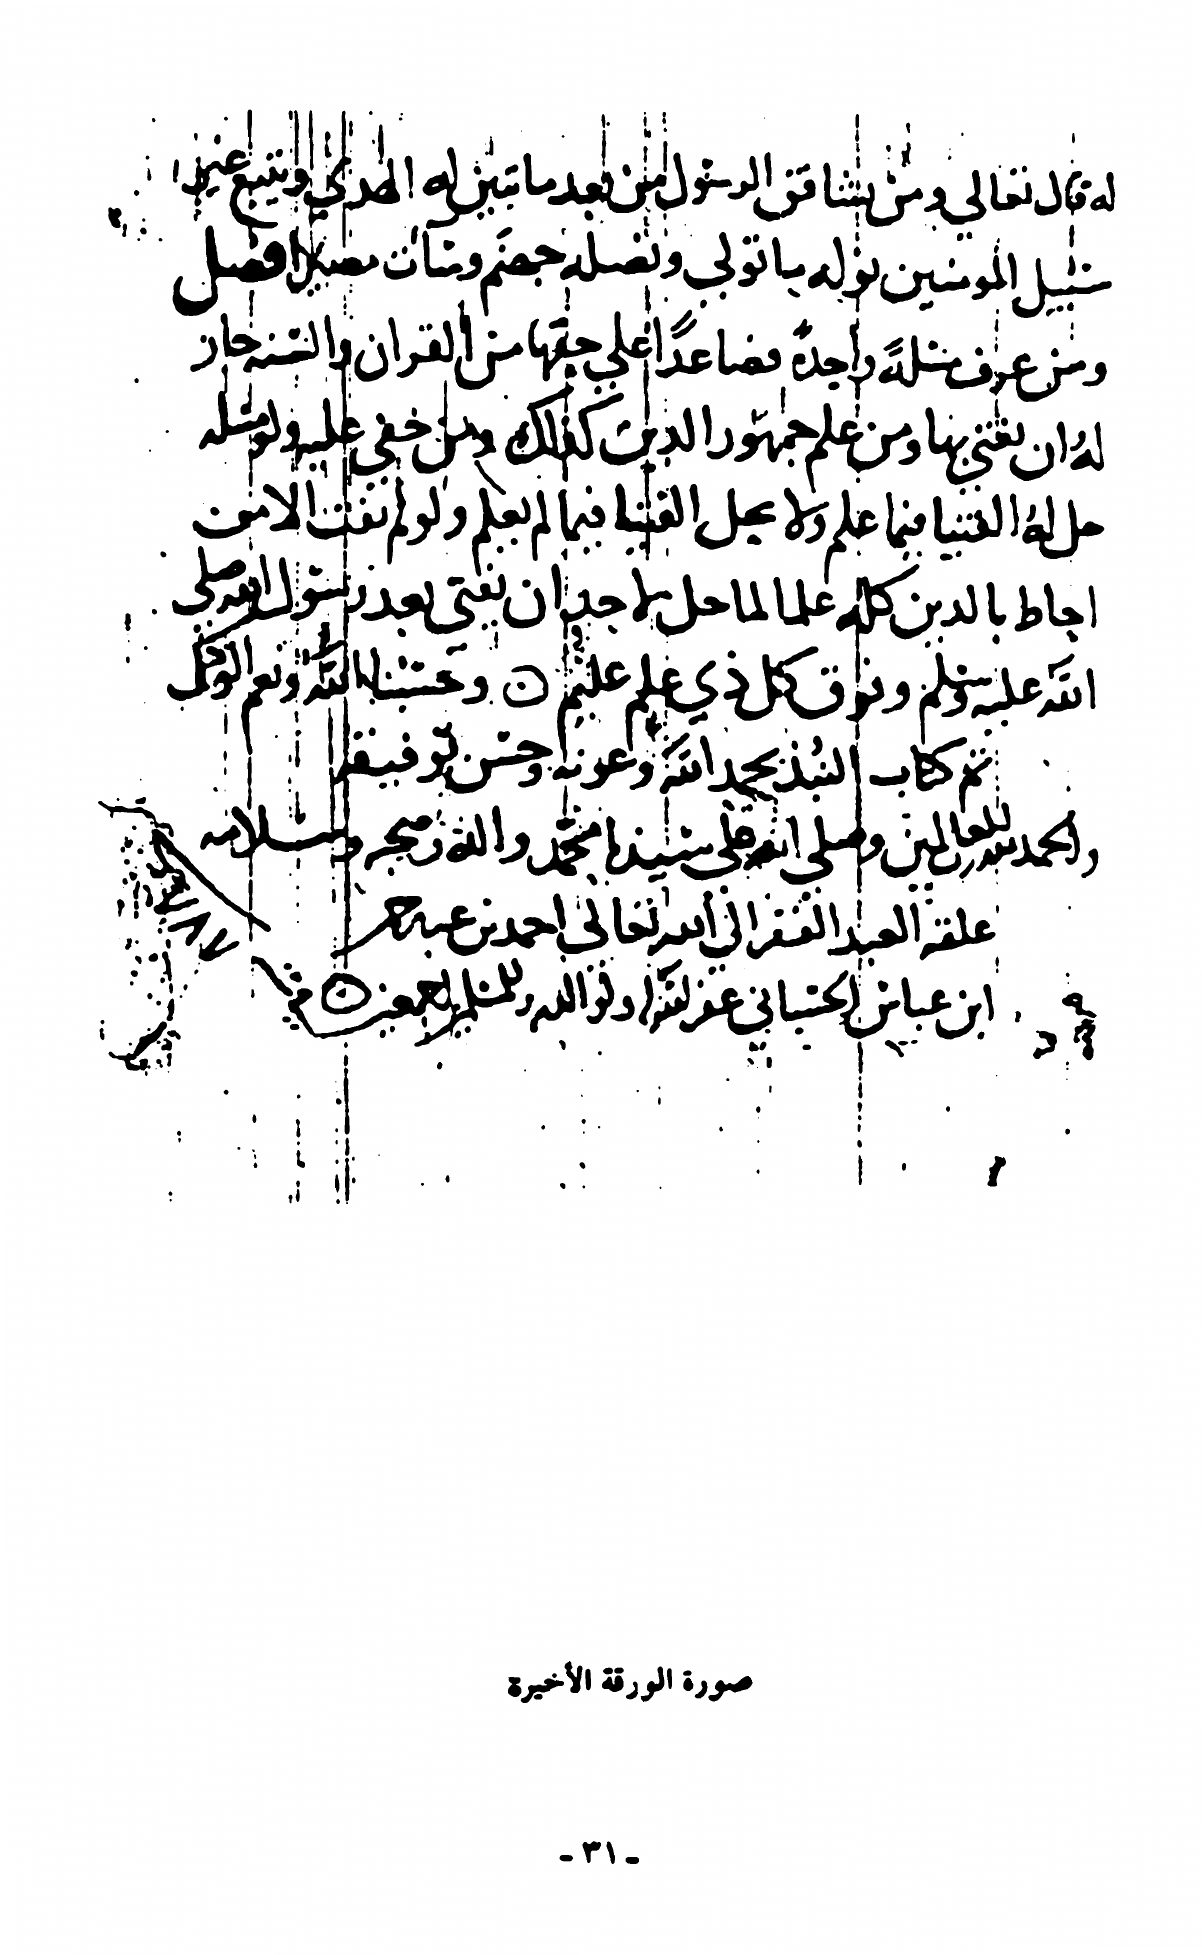 له قال تعالي ومن يشاقق الرسول من بعد ما تبين له الهدي ويتبع غير
سبيل المومنين نوله ما تولي ونصله جهنم وسات مصيرا فصل
ومن عرف مسلة واحدة فصاعدا علي حقها من القران والسنه جاز
له ان يفتي بها ومن علم جمهور الدين كذلك ومن خفي عليه ولو مسله
حل له الفتيا فيما علم ولا يحل الفتيا فيما لم يعلم ولو لم يفت الا من
احاط بالدين كله علما لما حل لاحد ان يفتي بعد رسول الله صلي
الله عليه وسلم وفوق كل ذي علم عليم وحسبنا الله ونعم الوكيل
تم كتاب النبذ بحمد الله وعونه وحسن توفيقه
والحمد لله رب العالمين وصلي الله علي سيدنا محمد واله وصحبه وسلامه
علقه العبد الفقير الي الله تعالي احمد بن
ابن عباس عفر الله له ولوالديه وللمسلمين اجمعين
صورة الورقة الأخيرة
- ٣١ -